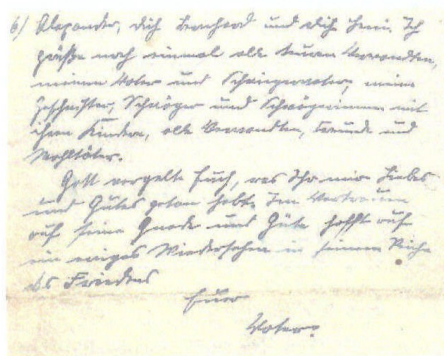 6/ Alexander, dich Bernhard und dich Heini. Ich
grüße noch einmal alle teuren Verwandten,
meinen Vater und Schwiegervater, meine
Geschwister, Schwäger und Schwägerinnen mit
ihren Kindern, alle Verwandten, Freunde und
Wohltäter.
Gott vergelte Euch, was Ihr mir Liebes
und Gutes getan habt. Im Vertrauen
auf seine Gnade und Güte hofft auf
ein ewiges Wiedersehen in seinem Reiche
des Friedens
Euer
Vater.